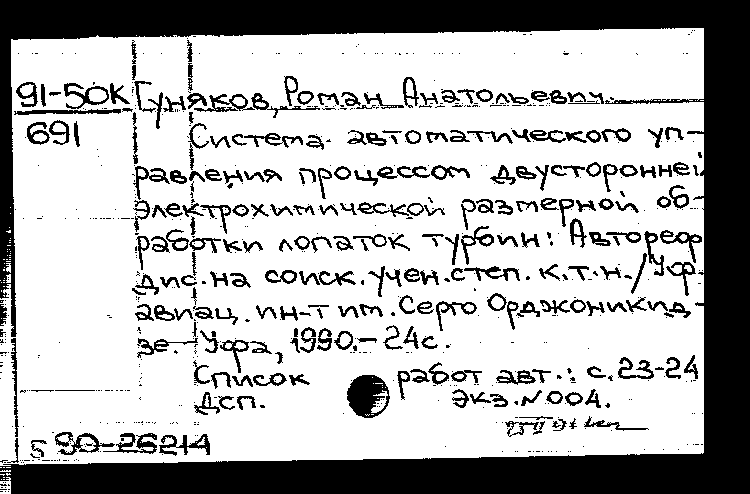 91-50К Гуняков, Роман Анатольевич.
691 Система автоматического уп-
равления процессом двусторонней
электрохимической размерной об-
работки лопаток турбин: Автореф
дис. на соиск. учен. степ. к.т.н. / Уфр.
авиац. ин-т им. Серго Орджоникид-
зе. - Уфа, 1990. - 24с.
Список работ авт.: с. 23-24
Дсп. Экз. N 004.
Б 90-26214